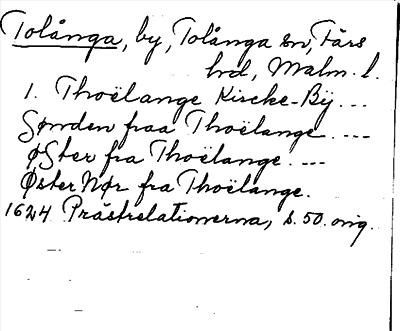 Tolånga, by, Tolånga sn, Färs
hd, Malm. l.
1. Thoëlange Kircke-Bÿ ---
Sønden fraa Thoëlange. ---
ØSter fra Thoëlange. ---
Øster Nør fra Thoëlange.
1624 Prästrelationerna, s. 50. orig.